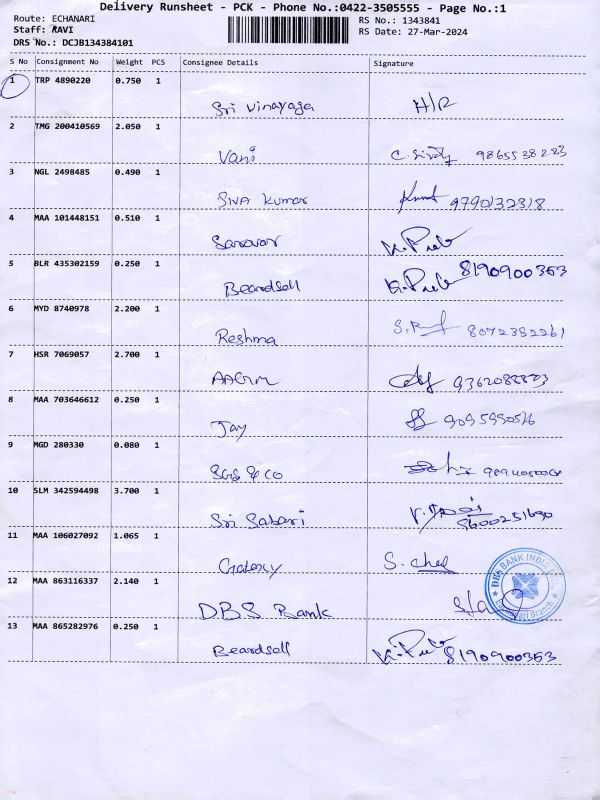 Delivery Runsheet - PCK - Phone No.:0422-3505555 - Page No.:1
Route: ECHANARI
RS No.: 1343841
Staff: RAVI
RS Date: 27-Mar-2024
DRS No.: DCJB134384101
S No Consignment No Weight PCS Consignee Details Signature
1 TRP 4890220 0.750 1
Sri Vinayaga H/R
2 TMG 200410569 2.050 1
Vani 9865538223
3 NGL 2498485 0.490 1
SIVA Kumar 9790132318
4 MAA 101448151 0.510 1
Saravan
5 BLR 435302159 0.250 1
Beardsell 8190900353
6 MYD 8740978 2.200 1
Reshma 8072352261
7 HSR 7069057 2.700 1
8 MAA 703646612 0.250 1
Jay
9 MGD 280330 0.080 1
SGS & CO
10 SLM 342594498 3.700 1
Sri Sabari 8600251690
11 MAA 106027092 1.065 1
Galaxy
12 MAA 863116337 2.140 1
DBS Bank DBS BANK INDIA
13 MAA 865282976 0.250 1
Beardsell 8190900353